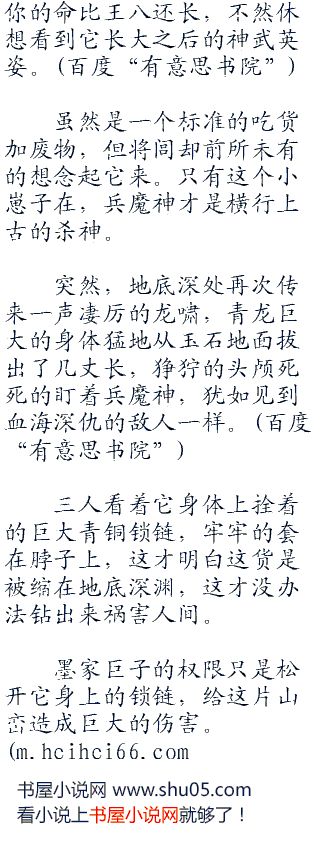 你的命比王八还长，不然休
想看到它长大之后的神武英
姿。(百度“有意思书院”)
虽然是一个标准的吃货
加废物，但将闾却前所未有
的想念起它来。只有这个小
崽子在，兵魔神才是横行上
古的杀神。
突然，地底深处再次传
来一声凄厉的龙啸，青龙巨
大的身体猛地从玉石地面拔
出了几丈长，狰狞的头颅死
死的盯着兵魔神，犹如见到
血海深仇的敌人一样。(百度
“有意思书院”)
三人看着它身体上拴着
的巨大青铜锁链，牢牢的套
在脖子上，这才明白这货是
被缩在地底深渊，这才没办
法钻出来祸害人间。
墨家巨子的权限只是松
开它身上的锁链，给这片山
峦造成巨大的伤害。
(m.hcihci66.com
书屋小说网 www.shu05.com
看小说上书屋小说网就够了！